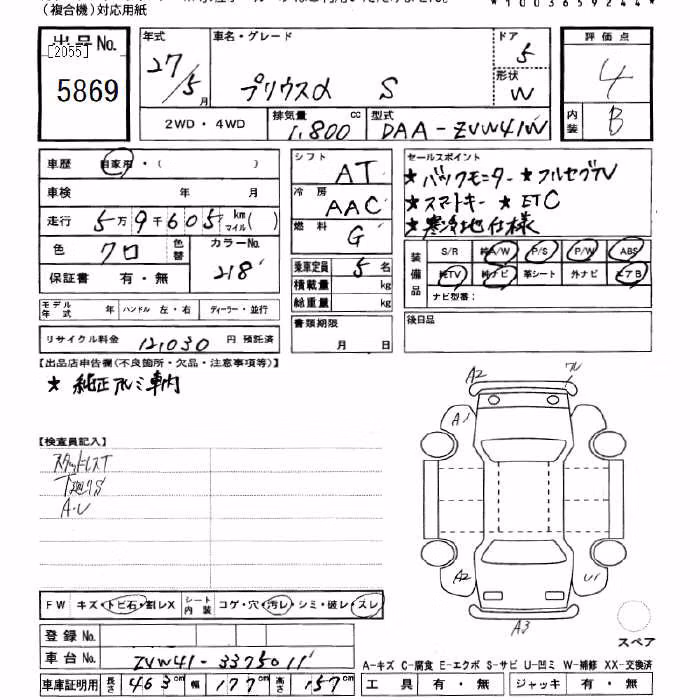 (複合機)対応用紙
*1003659244*
出品No.
[2055]
5869
年式
27/5月
車名・グレード
プリウスα S
ドア
5
形状
W
評価点
4
内装
B
2WD・4WD
排気量
1,800 cc
型式
DAA-ZVW41W
車歴
自家用・( )
車検 年 月
走行 5万9千605 km マイル( )
色
クロ
色替
カラーNo.
218
保証書 有・無
シフト
AT
冷房
AAC
燃料
G
乗車定員 5 名
積載量 kg
総重量 kg
セールスポイント
★バックモニター ★フルセグTV
★スマートキー ★ETC
★寒冷地仕様
装備品
S/R 純A/W P/S P/W ABS
純TV 純ナビ 革シート 外ナビ エアB
ナビ型番:
モデル年式 年 ハンドル 左・右 ディーラー・並行
リサイクル料金 12,030 円 預託済
書類期限
月 日
後日品
【出品店申告欄(不良箇所・欠品・注意事項等)】
★ 純正アルミ車内
【検査員記入】
スタッドレスT
A・U
A2
A1
A2
U1
A3
FW キズ・トビ石・割レX
シート内装 コゲ・穴・汚レ・シミ・破レ・スレ
登録No.
車台No. ZVW41-3375011
車庫証明用 長さ 463cm 幅 177cm 高さ 157cm
スペア
A-キズ C-腐食 E-エクボ S-サビ U-凹ミ W-補修 XX-交換済
工具 有・無 ジャッキ 有・無